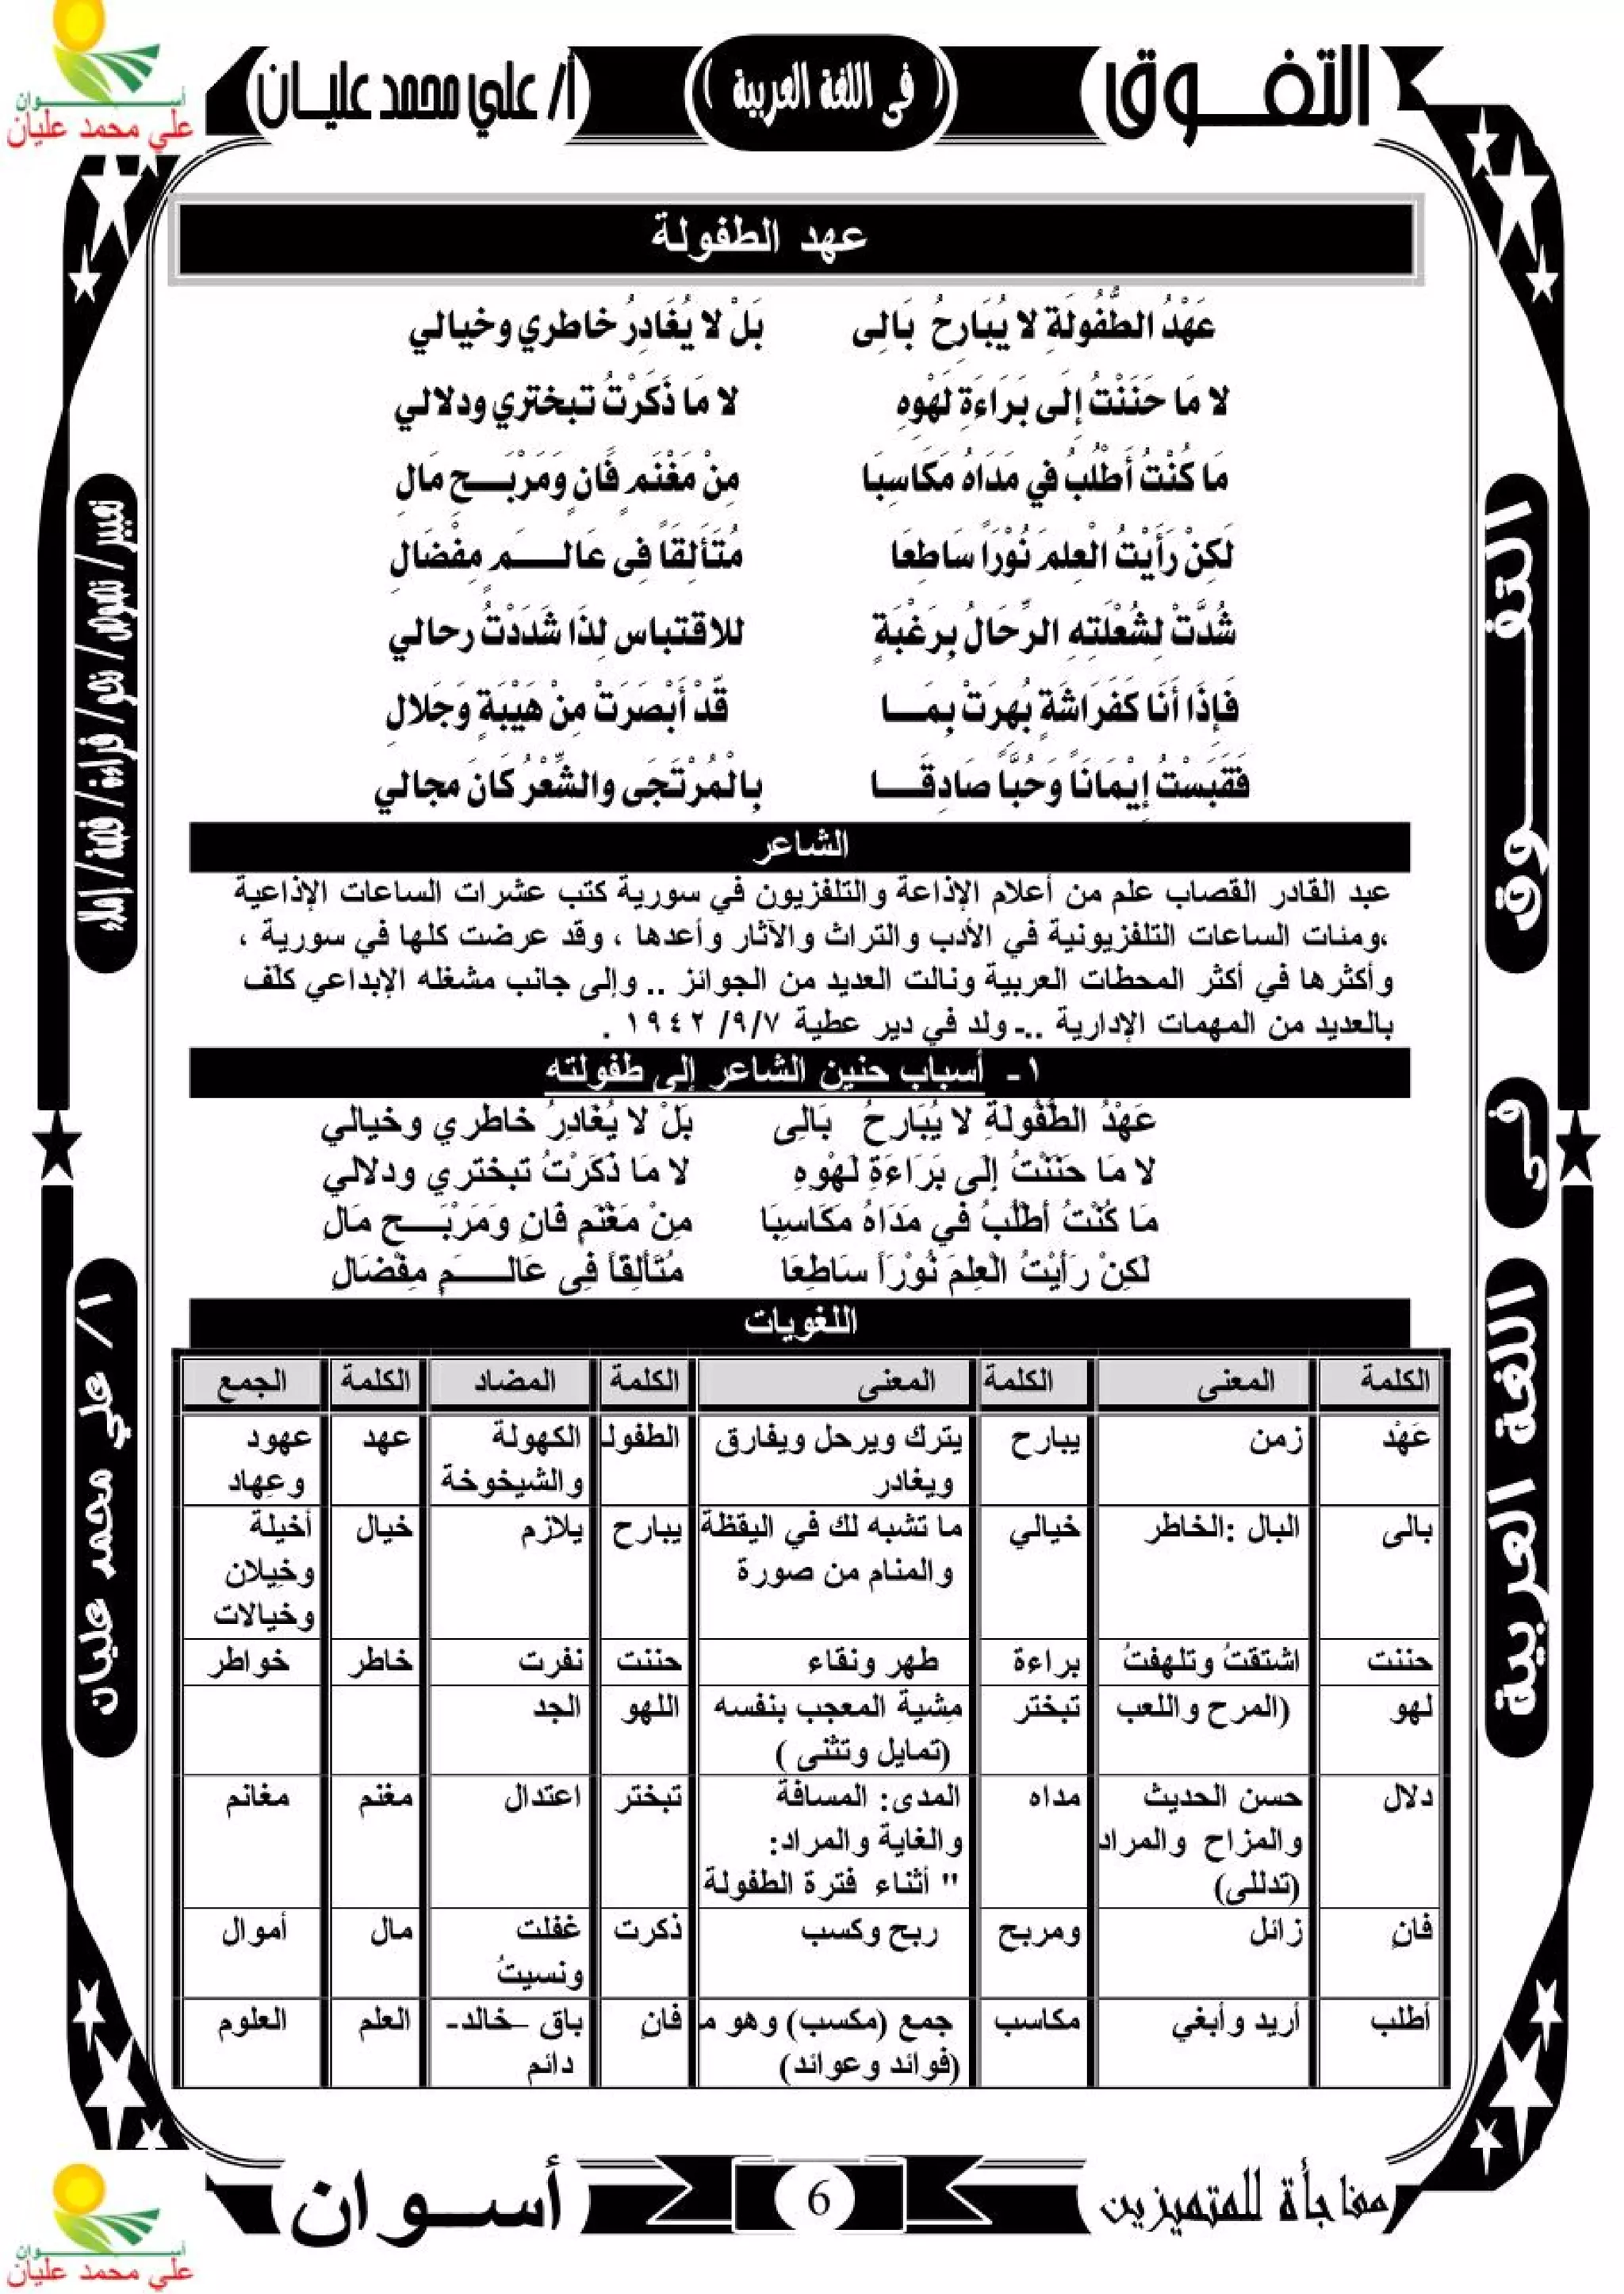 التفـــوق ( في اللغة العربية ) أ/ علي محمد عليــان
أســـوان
علي محمد عليان
عهد الطفولة
عَهْدُ الطُّفُولَةِ لا يُبَارِحُ بَالِى بَلْ لا يُغَادِرُ خاطري وخيالي
لا مَا حَنَنْتُ إِلَى بَرَاءَةِ لَهْوِهِ لا مَا ذَكَرْتُ تبختري ودلالي
مَا كُنْتُ أَطْلُبُ في مَدَاهُ مَكَاسِبَا مِنْ مَغْنَمٍ فَانٍ وَمَرْبَـــحِ مَالِ
لَكِنْ رَأَيْتُ الْعِلمَ نُوْرَاً سَاطِعَا مُتَأَلِقَاً فِى عَالـــــمٍ مِفْضَالِ
شُدَّتْ لِشُعْلَتِهِ الرِّحَالُ بِرَغْبَةٍ للاقتباس لِذَا شَدَدْتُ رحالي
فَإِذَا أَنَا كَفَرَاشَةٍ بُهِرَتْ بِمَـــا قَدْ أَبْصَرَتْ مِنْ هَيْبَةٍ وَجَلالِ
فَقَبَسْتُ إِيْمَانَاً وَحُبَّاً صَادِقَـــا بِالْمُرْتَجَى والشِّعْرُ كَانَ مجالي
الشاعر
عبد القادر القصاب علم من أعلام الإذاعة والتلفزيون في سورية كتب عشرات الساعات الإذاعية
،ومئات الساعات التلفزيونية في الأدب والتراث والآثار وأعدها ، وقد عرضت كلها في سورية ،
وأكثرها في أكثر المحطات العربية ونالت العديد من الجوائز .. وإلى جانب مشغله الإبداعي كلّف
بالعديد من المهمات الإدارية ..ـ ولد في دير عطية ٩/٧/ ١٩٤٢ .
١- أسباب حنين الشاعر إلى طفولته
عَهْدُ الطُّفُولَةِ لا يُبَارِحُ بَالِى بَلْ لا يُغَادِرُ خاطري وخيالي
لا مَا حَنَنْتُ إِلَى بَرَاءَةِ لَهْوِهِ لا مَا ذَكَرْتُ تبختري ودلالي
مَا كُنْتُ أَطْلُبُ في مَدَاهُ مَكَاسِبَا مِنْ مَغْنَمٍ فَانٍ وَمَرْبَـــحِ مَالِ
لَكِنْ رَأَيْتُ الْعِلمَ نُوْرَاً سَاطِعَا مُتَأَلِقَاً فِى عَالـــــمٍ مِفْضَالِ
اللغويات
الكلمة المعنى الكلمة المعنى الكلمة المضاد الكلمة الجمع
عَهْدُ زمن يبارح يترك ويرحل ويفارق الطفولـ الكهولة عهد عهود
ويغادر والشيخوخة وعِهاد
بالى البال :الخاطر خيالي ما تشبه لك في اليقظة يبارح يلازم خيال أخيلة
والمنام من صورة وخِيلان
وخيالات
حننت اشتقتُ وتلهفتُ براءة طهر ونقاء حننت نفرت خاطر خواطر
لهو (المرح واللعب تبختر مِشية المعجب بنفسه اللهو الجد
(تمايل وتثنى )
دلال حسن الحديث مداه المدى: المسافة تبختر اعتدال مغنم مغانم
والمزاح والمراد والغاية والمراد:
(تدللى) " أثناء فترة الطفولة
فانٍ زائل ومربح ربح وكسب ذكرت غفلت مال أموال
ونسيتُ
أطلب أريد وأبغي مكاسب جمع (مكسب) وهو مـ فانٍ باق –خالد- العلم العلوم
(فوائد وعوائد) دائم
التفـــوق
فى
اللغة العربية
تعبير/ نصوص/ نحو/ قراءة/ قصة/ إملاء
ا/ علي محمد عليان
مفاجأة للمتميزين 6 أســـوان
أســـوان
علي محمد عليان